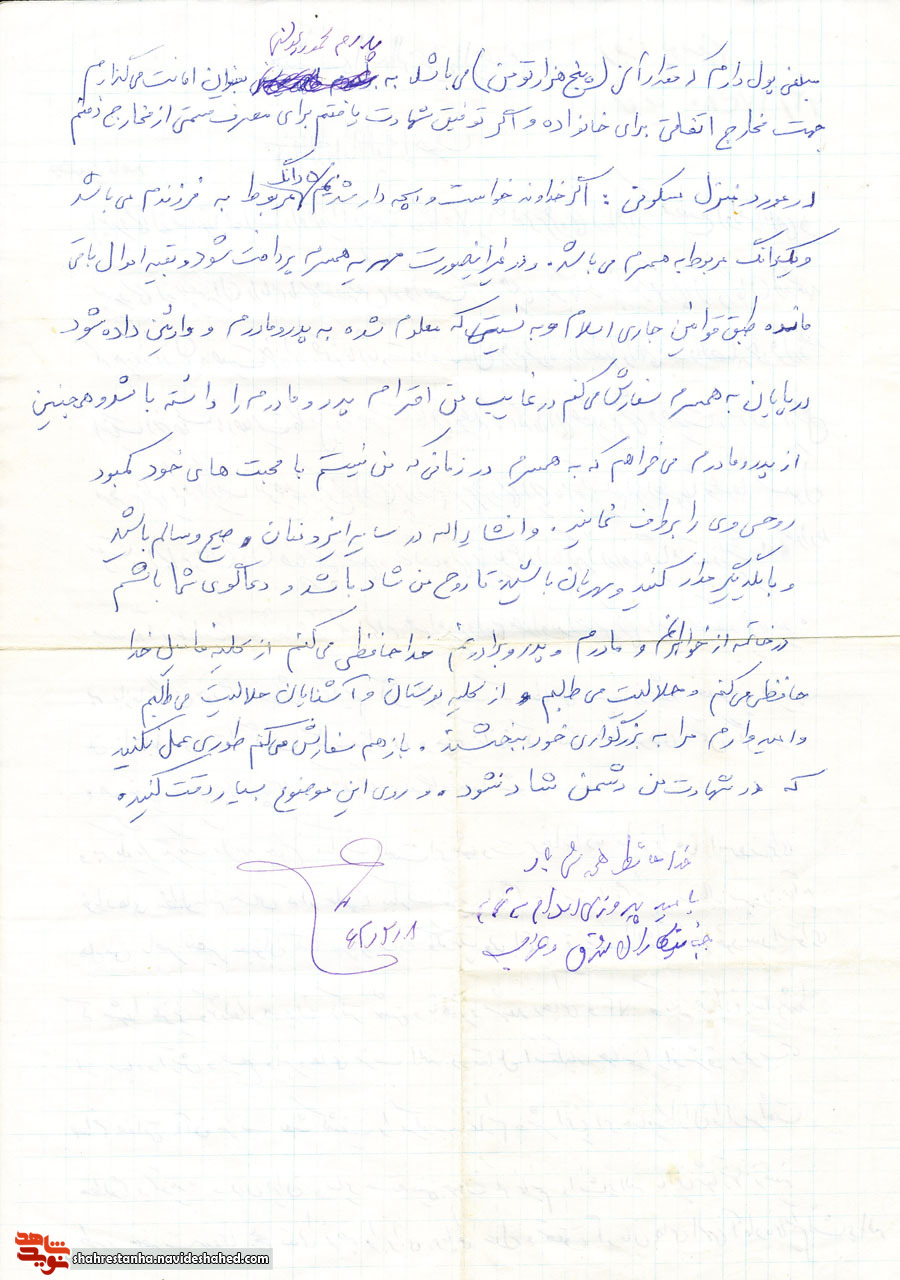 پدرم محمد
مبلغی پول دارم که مقدار آن (پنج هزار تومن) می باشد به بعنوان امانت می گذارم
جهت مخارج اتفاقی برای خانواده و اگر توفیق شهادت یافتم برای مصرف قسمتی از مخارج دفنم
در مورد منزل مسکونی : اگر خداوند خواست و بچه دار شدیم دانگ مربوط به فرزندم می باشد
و یکدانگ مربوط به همسرم می باشد. و در غیر اینصورت مهریه همسرم پرداخت شود و بقیه اموال باقی
مانده طبق قوانین جاری اسلام و به نسبتی که معلوم شده به پدر و مادرم و وارثین داده شود
در پایان به همسرم سفارش می کنم در غایب من احترام پدر و مادرم را داشته باشد و همچنین
از پدر و مادرم می خواهم که به همسرم در زمانی که من نیستم با محبت های خود کمبود
روحی وی را برطرف نمایند. و انشاءاله در سایه ایزد منان صحیح و سالم باشید
و با یکدیگر مدارا کنید و مهربان باشید تا روح من شاد باشد و دعاگوی شما باشم
در خاتمه از خواهرانم و مادرم و پدر و برادرانم خداحافظی می کنم از کلیه فامیل خدا
حافظی می کنم و حلالیت می طلبم و از کلیه دوستان و آشنایان حلالیت می طلبم
و امیدوارم مرا به بزرگواری خود ببخشند. باز هم سفارش می کنم طوری عمل نکنید
که در شهادت من دشمن شاد نشود. و روی این موضوع بسیار دقت کنید.
خدا حافظ همه شما
بامید پیروزی اسلام بر تمام
جنایتکاران شرق و غرب
۶۲/۲/۸
شاهد
نوید
shahrestanha.navideshahed.com